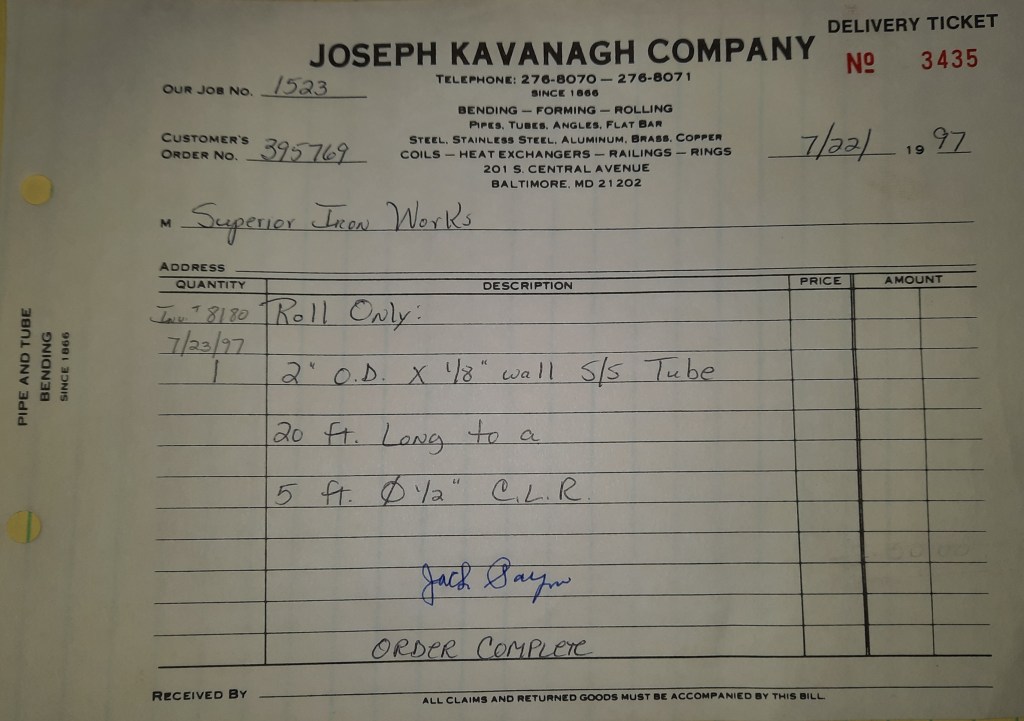 DELIVERY TICKET
JOSEPH KAVANAGH COMPANY
Nº 3435
TELEPHONE: 276-8070 — 276-8071
SINCE 1866
OUR JOB NO. 1523
BENDING — FORMING — ROLLING
PIPES, TUBES, ANGLES, FLAT BAR
STEEL, STAINLESS STEEL, ALUMINUM, BRASS, COPPER
CUSTOMER'S
ORDER NO. 395769
COILS — HEAT EXCHANGERS — RAILINGS — RINGS
7/22/ 19 97
201 S. CENTRAL AVENUE
BALTIMORE, MD 21202
M Superior Iron Works
ADDRESS
QUANTITY DESCRIPTION PRICE AMOUNT
Inv. # 8180 Roll Only:
7/23/97
1 2" O.D. X 1/8" wall S/S Tube
20 ft. Long to a
5 ft. Ø 1/2" C.L.R.
Jack
ORDER COMPLETE
RECEIVED BY
ALL CLAIMS AND RETURNED GOODS MUST BE ACCOMPANIED BY THIS BILL.
PIPE AND TUBE
BENDING
SINCE 1866